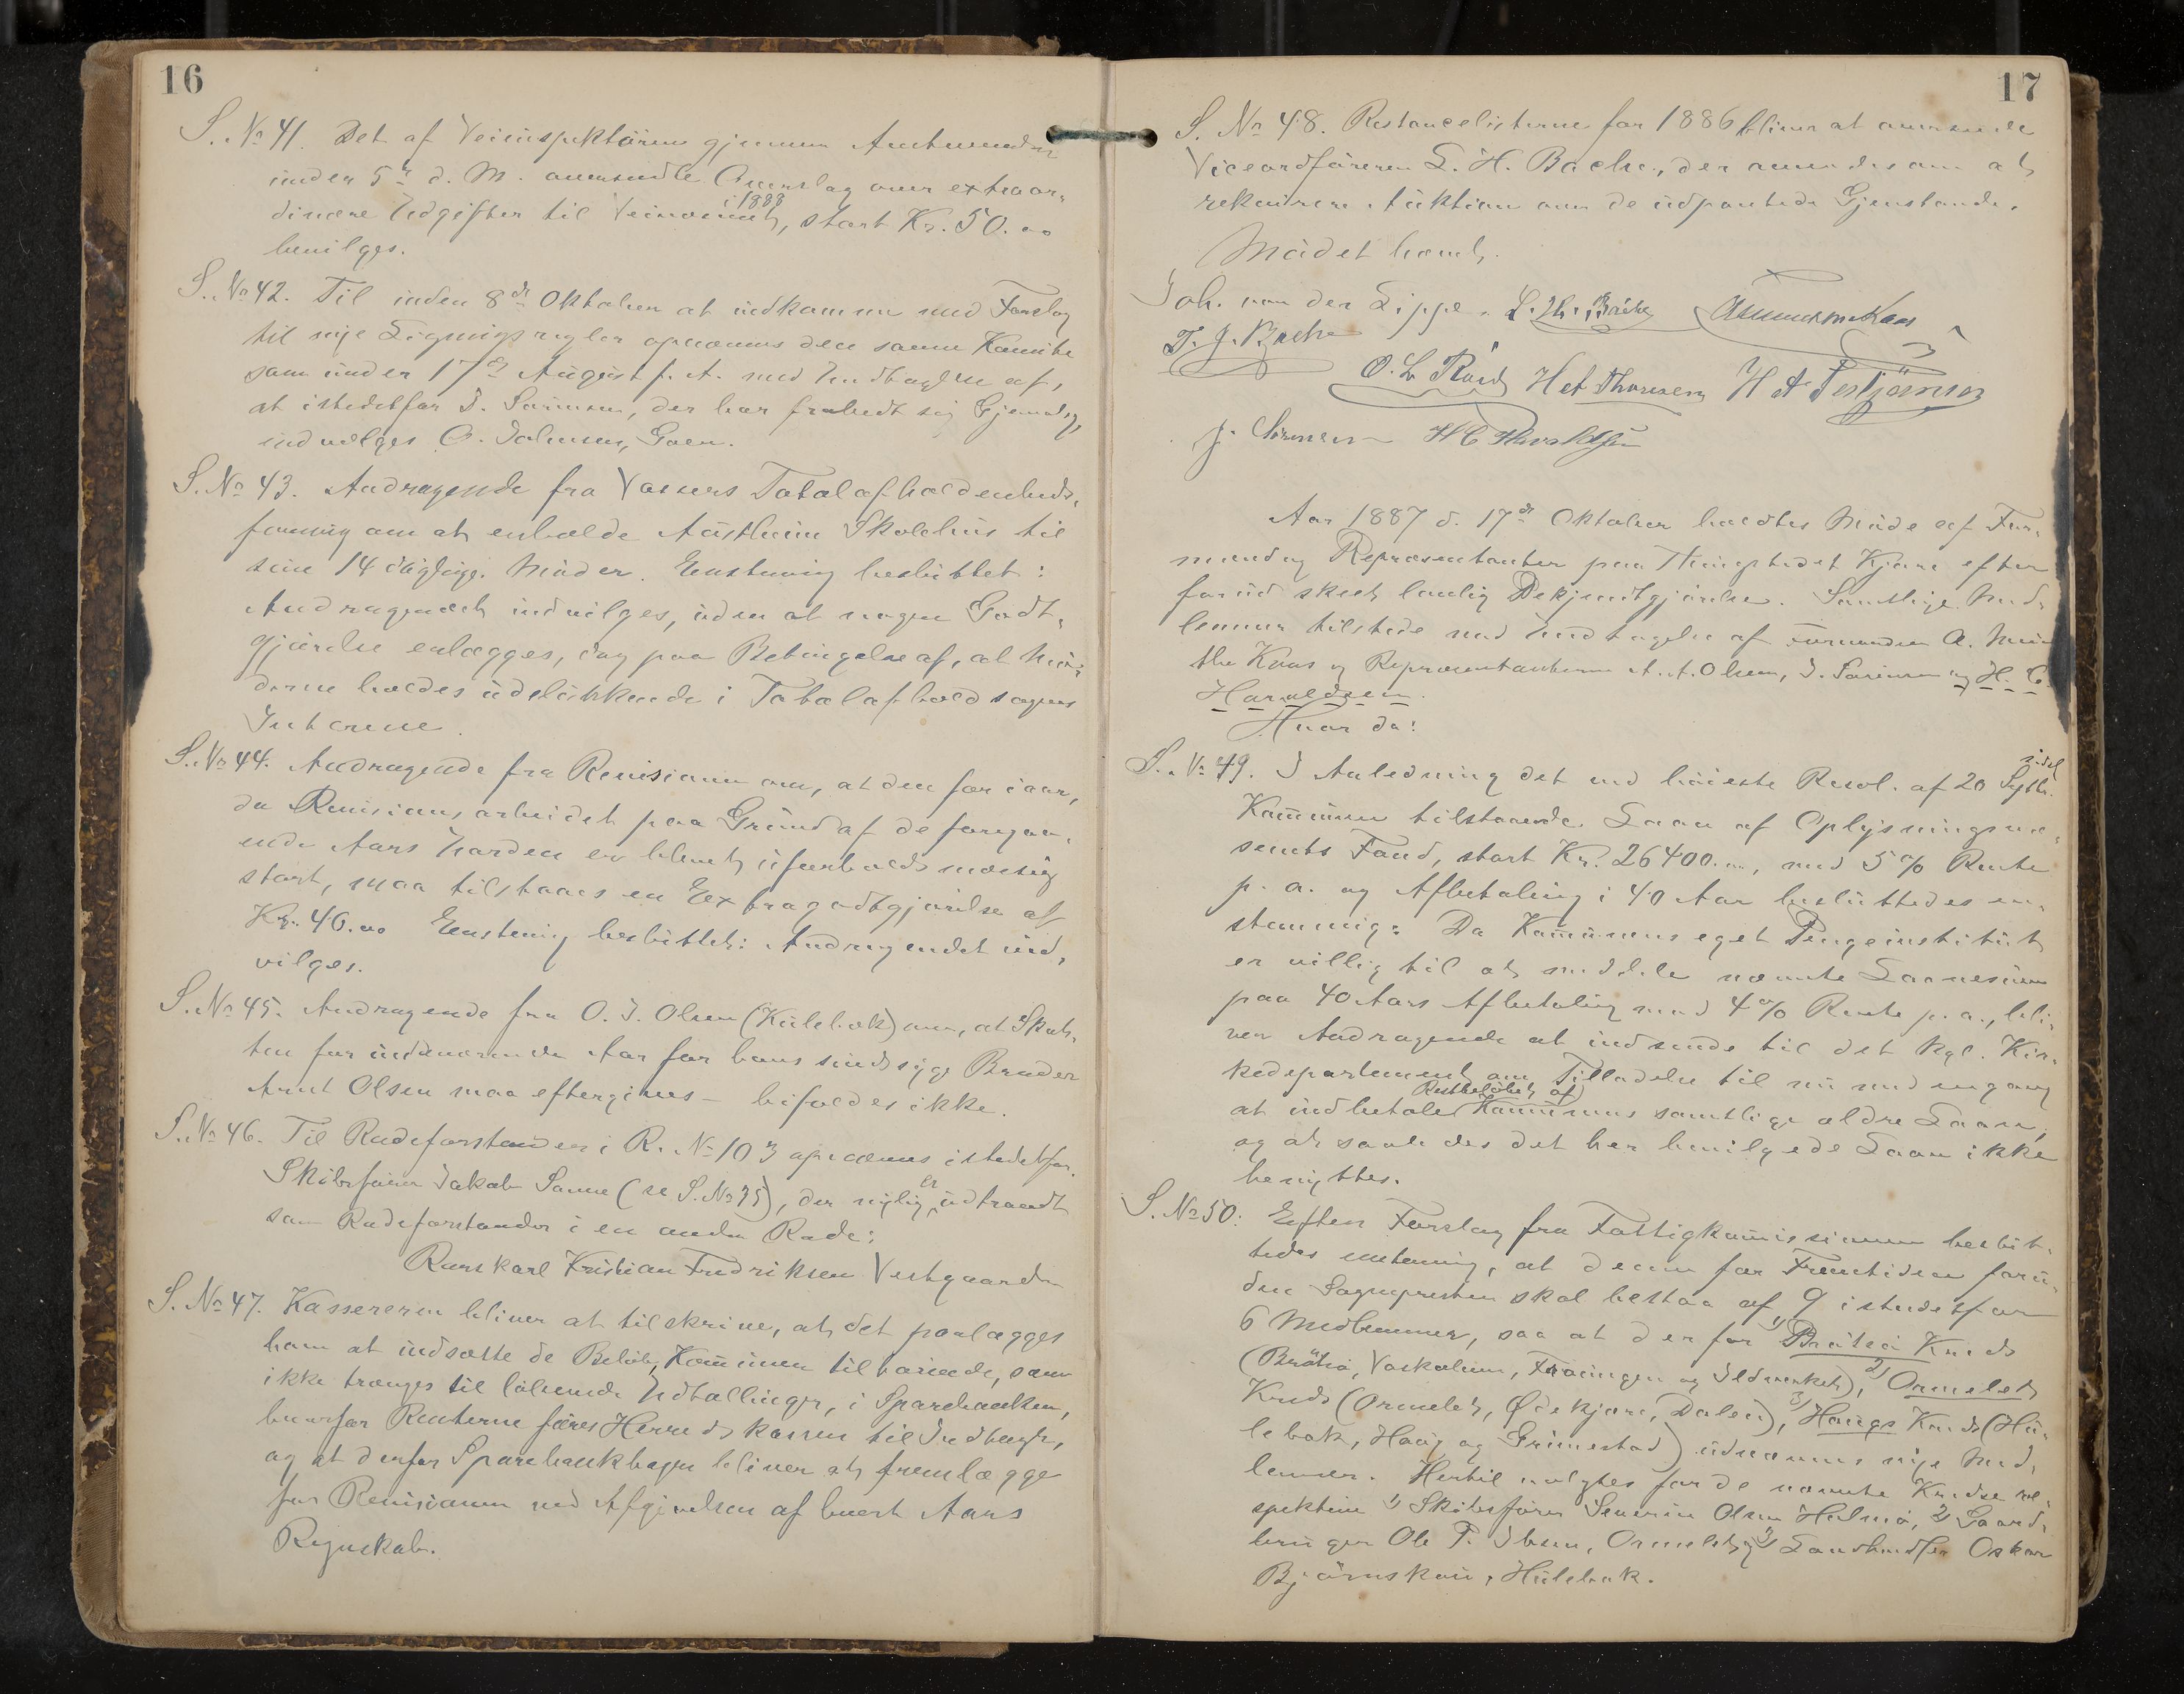 16
S. No 41. Det af Veiinspektøren gjennem Amtmanden
under 5te d. M. oversendte Overslag over extraor-
dinære Udgifter til Veivæsenet i 1888, stort Kr. 50.00
bevilges.
S. No 42. Til inden 8de Oktober at indkomme med Forslag
til nye Ligningsregler opnævnes den samme Komite
som under 17de August f. A. med Undtagelse af,
at istedetfor J. Sørensen, der har frabedt sig Gjenvalg,
indvælges O. Johnsen, Goen.
S. No 43. Andragende fra Vassers Totalafholdenheds-
forening om at erholde Aastheim Skolehus til
sine 14 daglige Møder. Enstemig besluttet:
Andragendet indvilges, uden at nogen Godt-
gjørelse erlægges, dog paa Betingelse af, at Mø-
derne holdes udelukkende i Totalafholdssagens
Interesse.
S. No 44. Andragende fra Revisionen om, at den for iaar,
da Revisionsarbeidet paa Grund af de foregaa-
ende Aars Orden er blevet uforholdsmæssig
stort, maa tilstaaes en Extragodtgjørelse af
Kr. 40.00 Enstemig besluttet: Andragendet ind-
vilges.
S. No 45. Andragende fra O. J. Olsen (Hulebak) om, at Skat-
ten for indeværende Aar for hans sindssyge Broder
Arnt Olsen maa eftergives – bifaldes ikke.
S. No 46. Til Rodeforstander i R. No 103 opnævnes istedetfor
Skibsfører Jakob Sanne (se S. No 35), der nylig er udtraadt
som Rodeforstander i en anden Rode:
Karl Kristian Fredriksen Vestgaarden
S. No 47. Kassereren bliver at tilskrive, at det paalægges
ham at indsætte de Beløb, Kommunen tilhørende, som
ikke trænges til løbende Udtællinger, i Sparebanken,
hvorfor Renterne føres Herredskassen til Indtægt,
og at derfor Sparebankbogen bliver at fremlægge
for Revisionen ved Afgivelsen af hvert Aars
Regnskab.
17
S. No 48. Restancelisterne for 1886 bliver at oversende
Viceordføreren L. H. Bache, der anmodes om at
rekvirere Auktion over de udpantede Gjenstande.
Mødet hævet.
Joh. von der Lippe. L. H. Bache A Munthe Kaas
T. J. Bache
O. L. Røed H A Thoresen H A Torbjørnsen
J. Sørensen H C Haraldsen
Aar 1887 d. 17de Oktober holdtes Møde af For-
mænd og Repræsentanter paa Thingstedet Kjære efter
forud skeet lovlig Bekjendtgjørelse. Samtlige Med-
lemmer tilstede med Undtagelse af Formanden A. Mun-
the Kaas og Repræsentanterne A. A. Olsen, J. Sørensen og H. C.
Haraldsen.
Hvor da:
S. No 49. I Anledning det ved høieste Resol. af 20 Septbr. sidstl.
Kommunen tilstaaede Laan af Oplysningsvæ-
senets Fond, stort Kr. 26400.00, med 5 % Rente
p. a. og Afbetaling i 40 Aar besluttedes en-
stemmig: Da Kommunens eget Pengeinstitut
er villig til at meddele nævnte Laanesum
paa 40 Aars Afbetaling med 4 % Rente p. a., bli-
ver Andragende at indsende til det kgl. Kir-
kedepartement om Tilladelse til nu med engang
at indbetale Restbeløbet af Kommunens samtlige ældre Laan,
og at saaledes det her bevilgede Laan ikke
benyttes.
S. No 50: Efter Forslag fra Fattigkommissionen beslut-
tedes enstemig, at denne for Fremtiden foru-
den Sognepresten skal bestaa af 9 istedetfor
6 Medlemmer, saa at der for 1) Bratsø Kreds
(Bråtsø, Vaskalven, Fræingen og Ildverket), 2) Ormelet
Kreds (Ormelet, Ødekjære, Dalen), 3) Haugs Kreds (Hu-
lebak, Haug og Grimestad) udnævnes nye Med-
lemmer. Hertil valgtes for de nævnte Kredse re-
spektive 1) Skibsfører Severin Olsen Holmø, 2) Gaard-
bruger Ole P. Ibsen, Ormelet og 3) Landhandler Oskar
Bjørnskou, Hulebak.